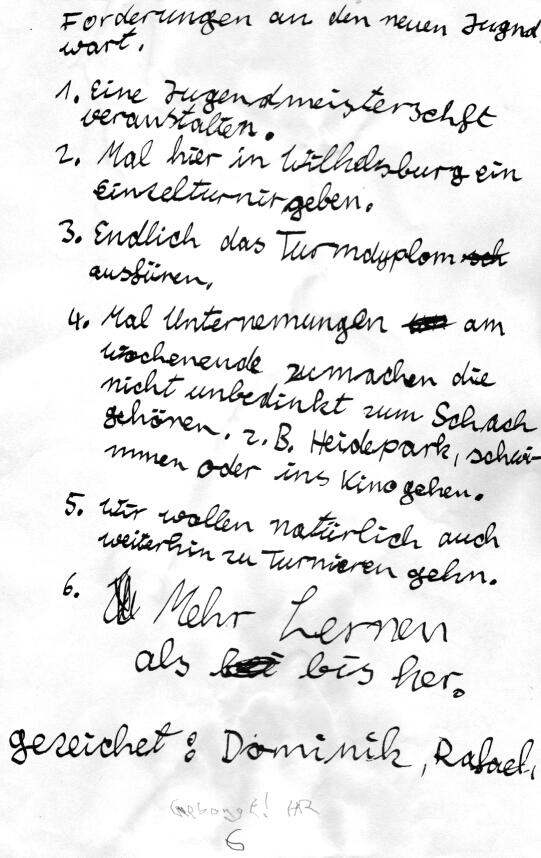 Forderungen an den neuen Jugend
wart.
1. Eine Jugendmeisterschft
veranstalten.
2. Mal hier in Wilhelsburg ein
einzelturnir geben.
3. Endlich das Turmdyplom
ausfüren.
4. Mal Unternemungen am
wochenende zumachen die
nicht unbedinkt zum Schach
gehören. z.B. Heidepark, schwi-
mmen oder ins Kino gehen.
5. Wir wollen natürlich auch
weiterhin zu Turnieren gehn.
6. Mehr Lernen
als bis her.
gezeichet: Dominik, Rafael,
HR
6